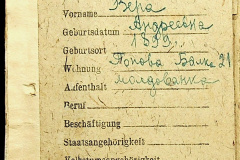 Вера
Vorname
Андреевна
Geburtsdatum 1889
Geburtsort
Попова Балка 21
Wohnung
молдованка
Aufenthalt
Beruf
Beschäftigung
Staatsangehörigkeit
Volkstumszugehörigkeit